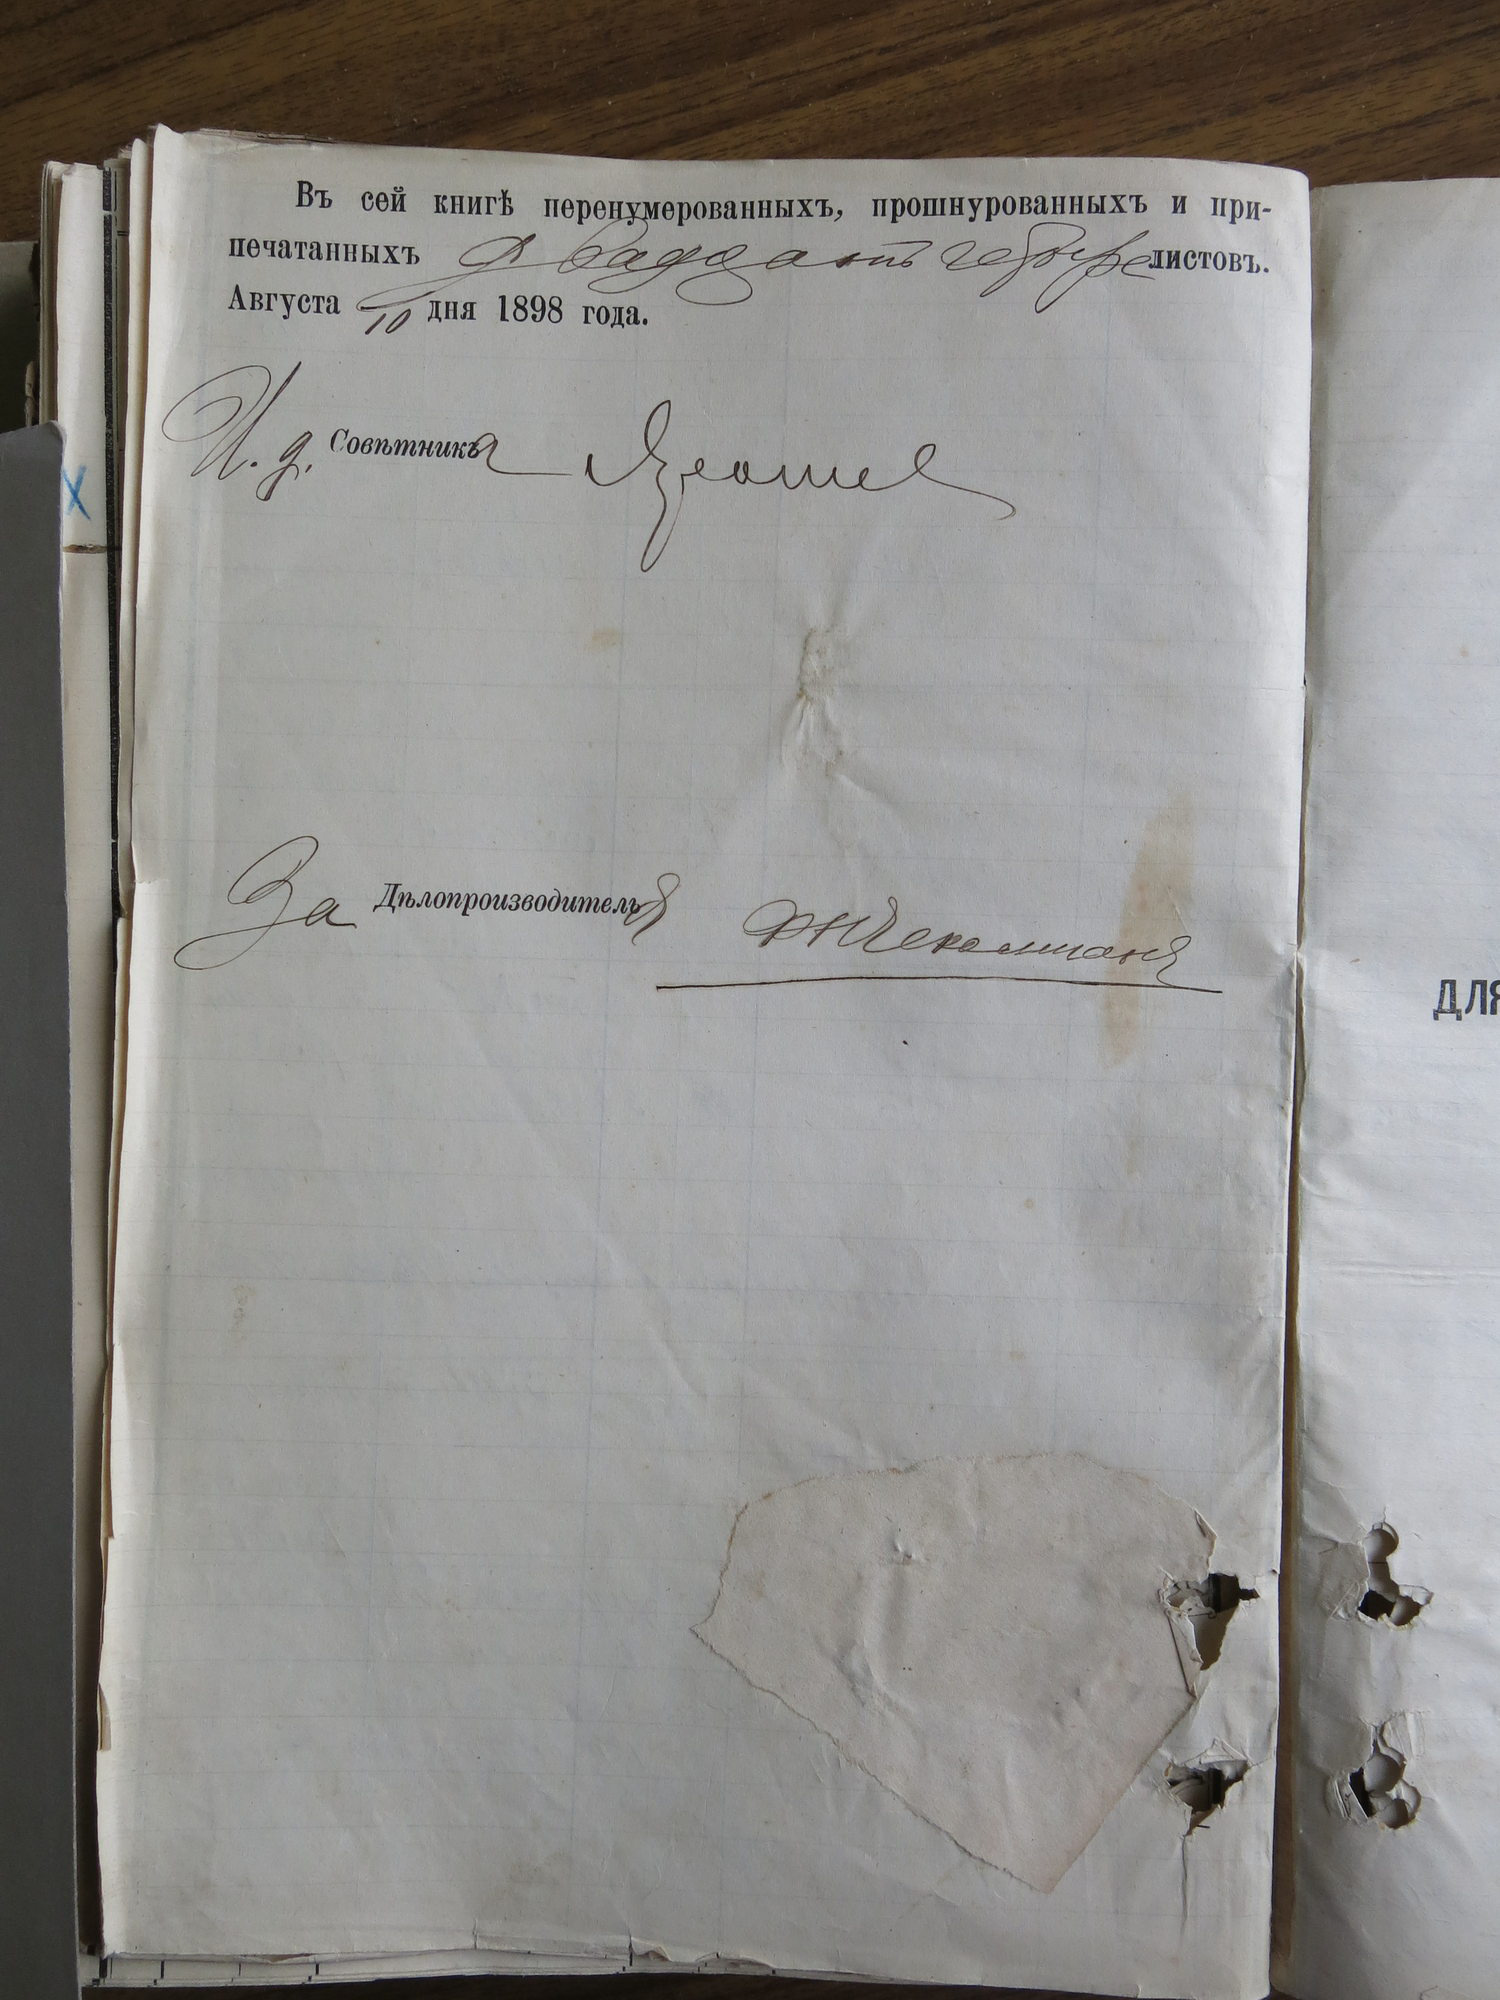 Въ сей книгѣ перенумерованныхъ, прошнурованныхъ и при-
печатанныхъ двадцать четыре листовъ.
Августа 10 дня 1898 года.
И. д. Совѣтника
За Дѣлопроизводителя
ДЛЯ